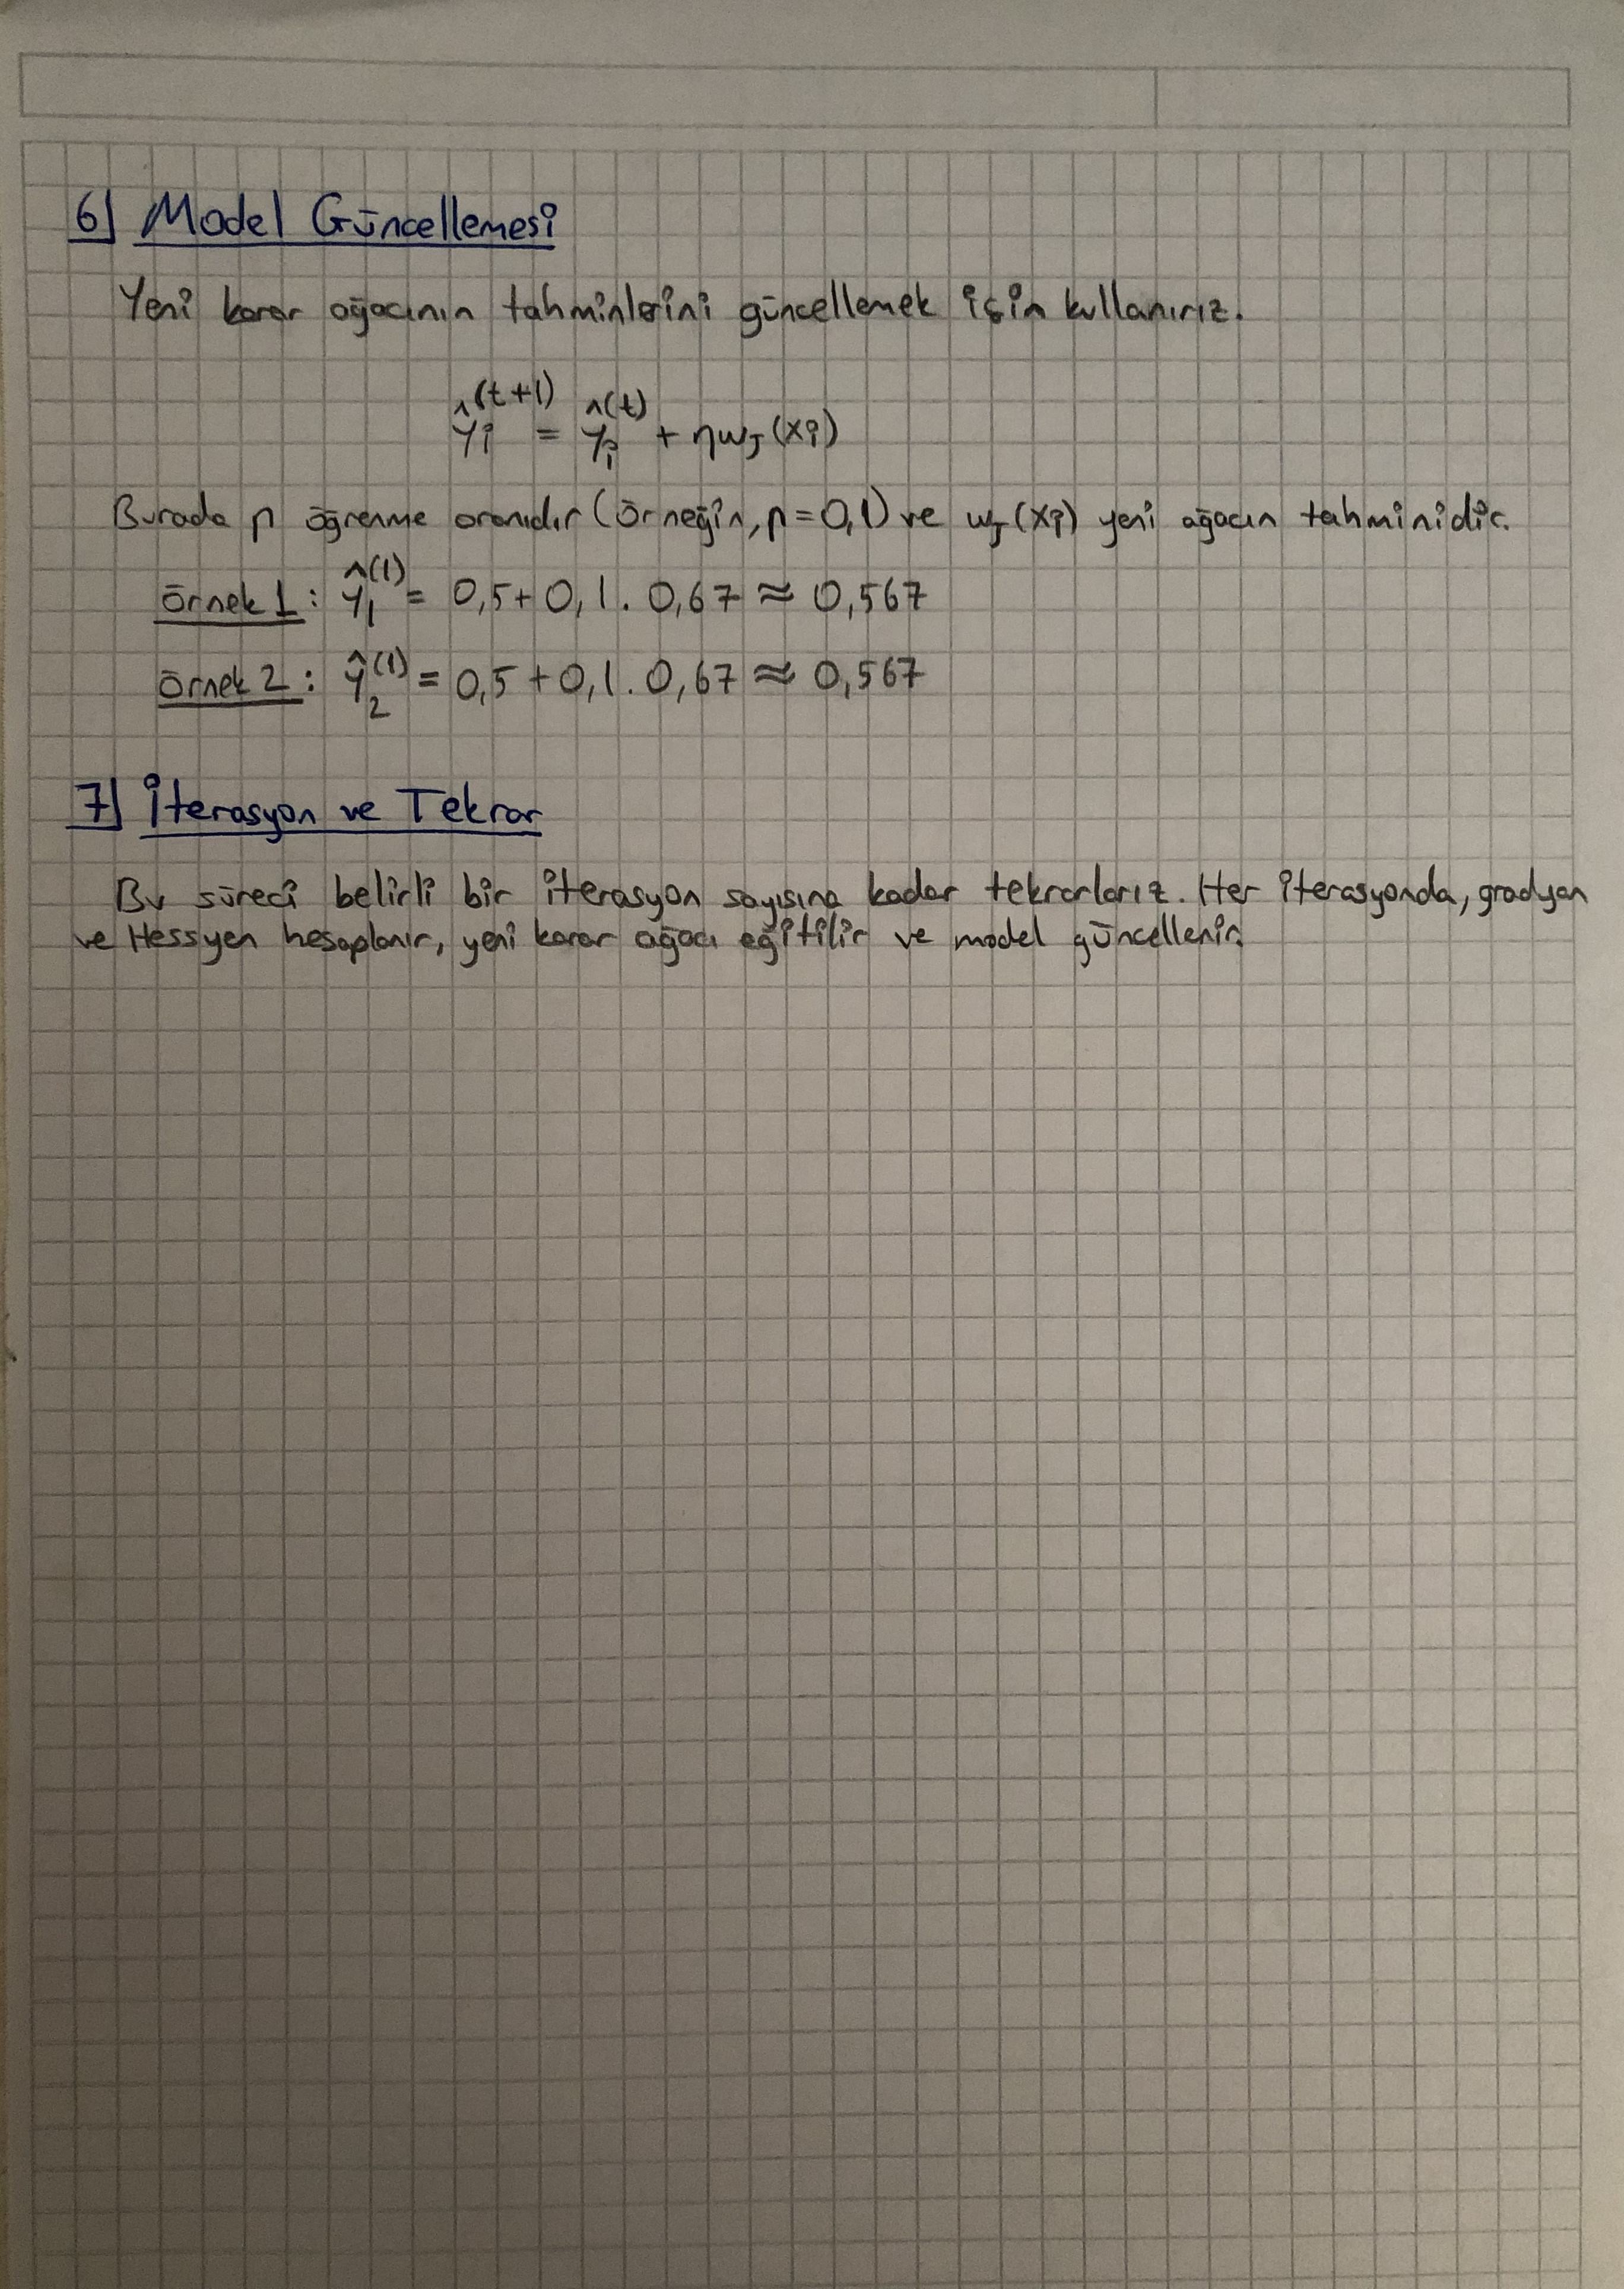 6] Model Güncellemesi
Yeni karar ağacının tahminlerini güncellemek için kullanırız.
ŷᵢ^(t+1) = ŷᵢ^(t) + ηwⱼ(xᵢ)
Burada η öğrenme oranıdır (Örneğin, η=0,1) ve wⱼ(xᵢ) yeni ağacın tahminidir.
Örnek 1: ŷ₁^(1) = 0,5+0,1.0,67 ≈ 0,567
Örnek 2: ŷ₂^(1) = 0,5+0,1.0,67 ≈ 0,567
7] İterasyon ve Tekrar
Bu süreci belirli bir iterasyon sayısına kadar tekrarlarız. Her iterasyonda, gradyan
ve Hessyen hesaplanır, yeni karar ağacı eğitilir ve model güncellenir.